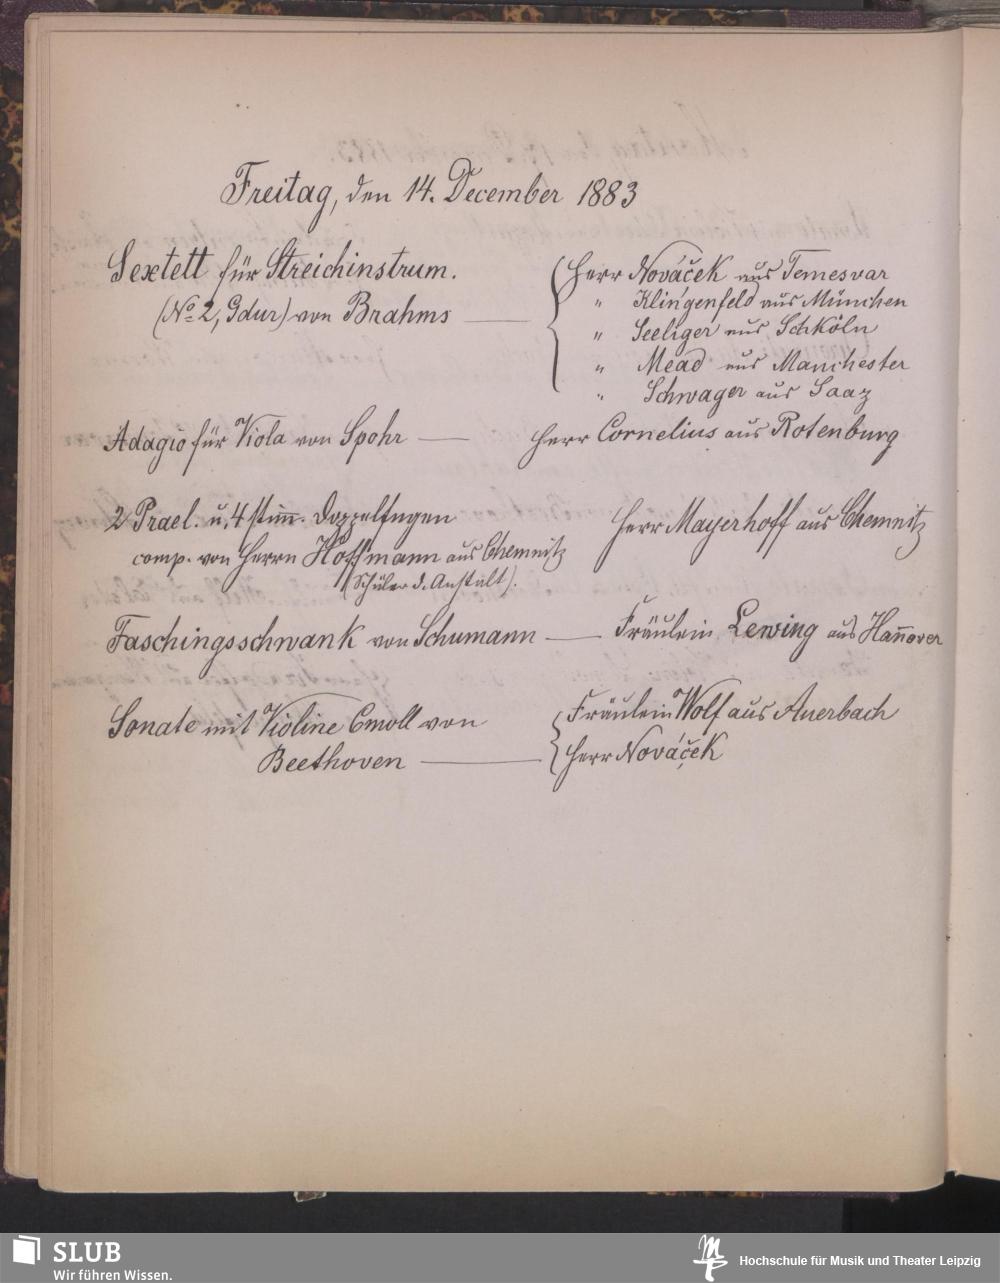 Freitag, den 14. December 1883
Sextett für Streichinstrum.
(No 2, Gdur) von Brahms
Herr Nováček aus Temesvar
" Klingenfeld aus München
" Seeliger aus Schköln
" Mead aus Manchester
" Schwager aus Saaz
Adagio für Viola von Spohr — Herr Cornelius aus Rotenburg
2 Prael. u. 4 stim̅. Doppelfugen Herr Mayerhoff aus Chemnitz
comp. von Herrn Hoffmann aus Chemnitz
(Schüler d. Anstalt).
Faschingsschwank von Schumann — Fräulein Lewing aus Han̅over
Sonate mit Violine Cmoll von
Beethoven
Fräulein Wolf aus Auerbach
Herr Nováček
SLUB
Wir führen Wissen.
Hochschule für Musik und Theater Leipzig